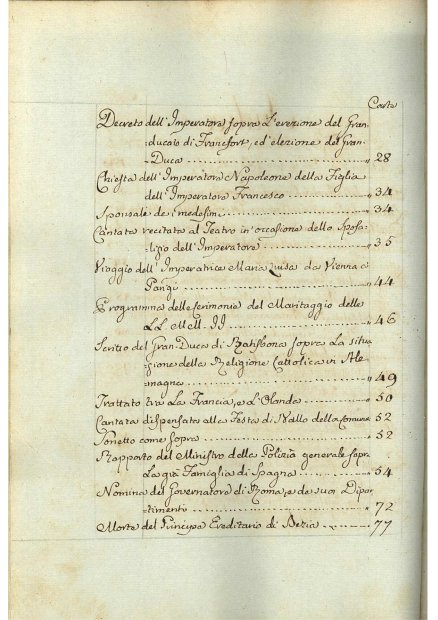 Carte
Decreto dell'Imperatore sopra L'erezione del Gran-
ducato di Francfort, ed'elezione del Gran-
Duca .................... " 28
Chiesta dell'Imperatore Napoleone della Figlia
dell'Imperatore Francesco .................... " 34
Sponsale de i medesimi .................... " 34
Cantata recitata al Teatro in'occasione dello Sposa-
lizio dell'Imperatore .................... " 35
Viaggio dell'Imperatrice Maria Luisa da Vienna a
Parigi .................... " 44
Programma delle cerimonie del Maritaggio delle
LL. MM. II .................... " 46
Scritto del Gran-Duca di Ratisbona sopra La situa-
zione della Religione Cattolica in Ale-
magna .................... " 49
Trattato tra La Francia, e L'Olanda .................... " 50
Cantata dispensata alla Festa di Ballo della Comune 52
Sonetto come sopra .................... " 52
Rapporto del Ministro della Polizia generale sopra
La già Famiglia di Spagna .................... " 54
Nomina del Governatore di Roma, e de suoi Dipar-
timento .................... " 72
Morte del Principe Ereditario di Svezia .................... " 77